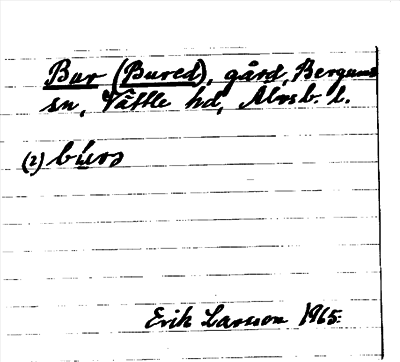 Bur (Bured), gård, Bergums
sn, Vättle hd, Älvsb. l.
(2) burs
Erik Larsson 1965.